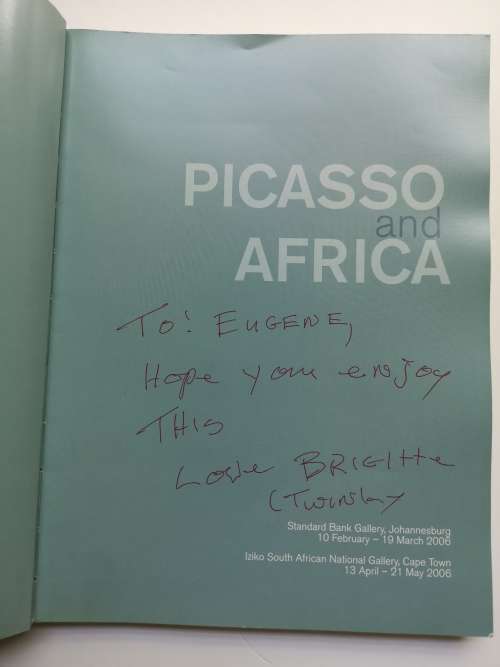 PICASSO
and
AFRICA
To: EUGENE,
Hope you enjoy
THIS
Love BRIGITTE
Standard Bank Gallery, Johannesburg
10 February – 19 March 2006
Iziko South African National Gallery, Cape Town
13 April – 21 May 2006